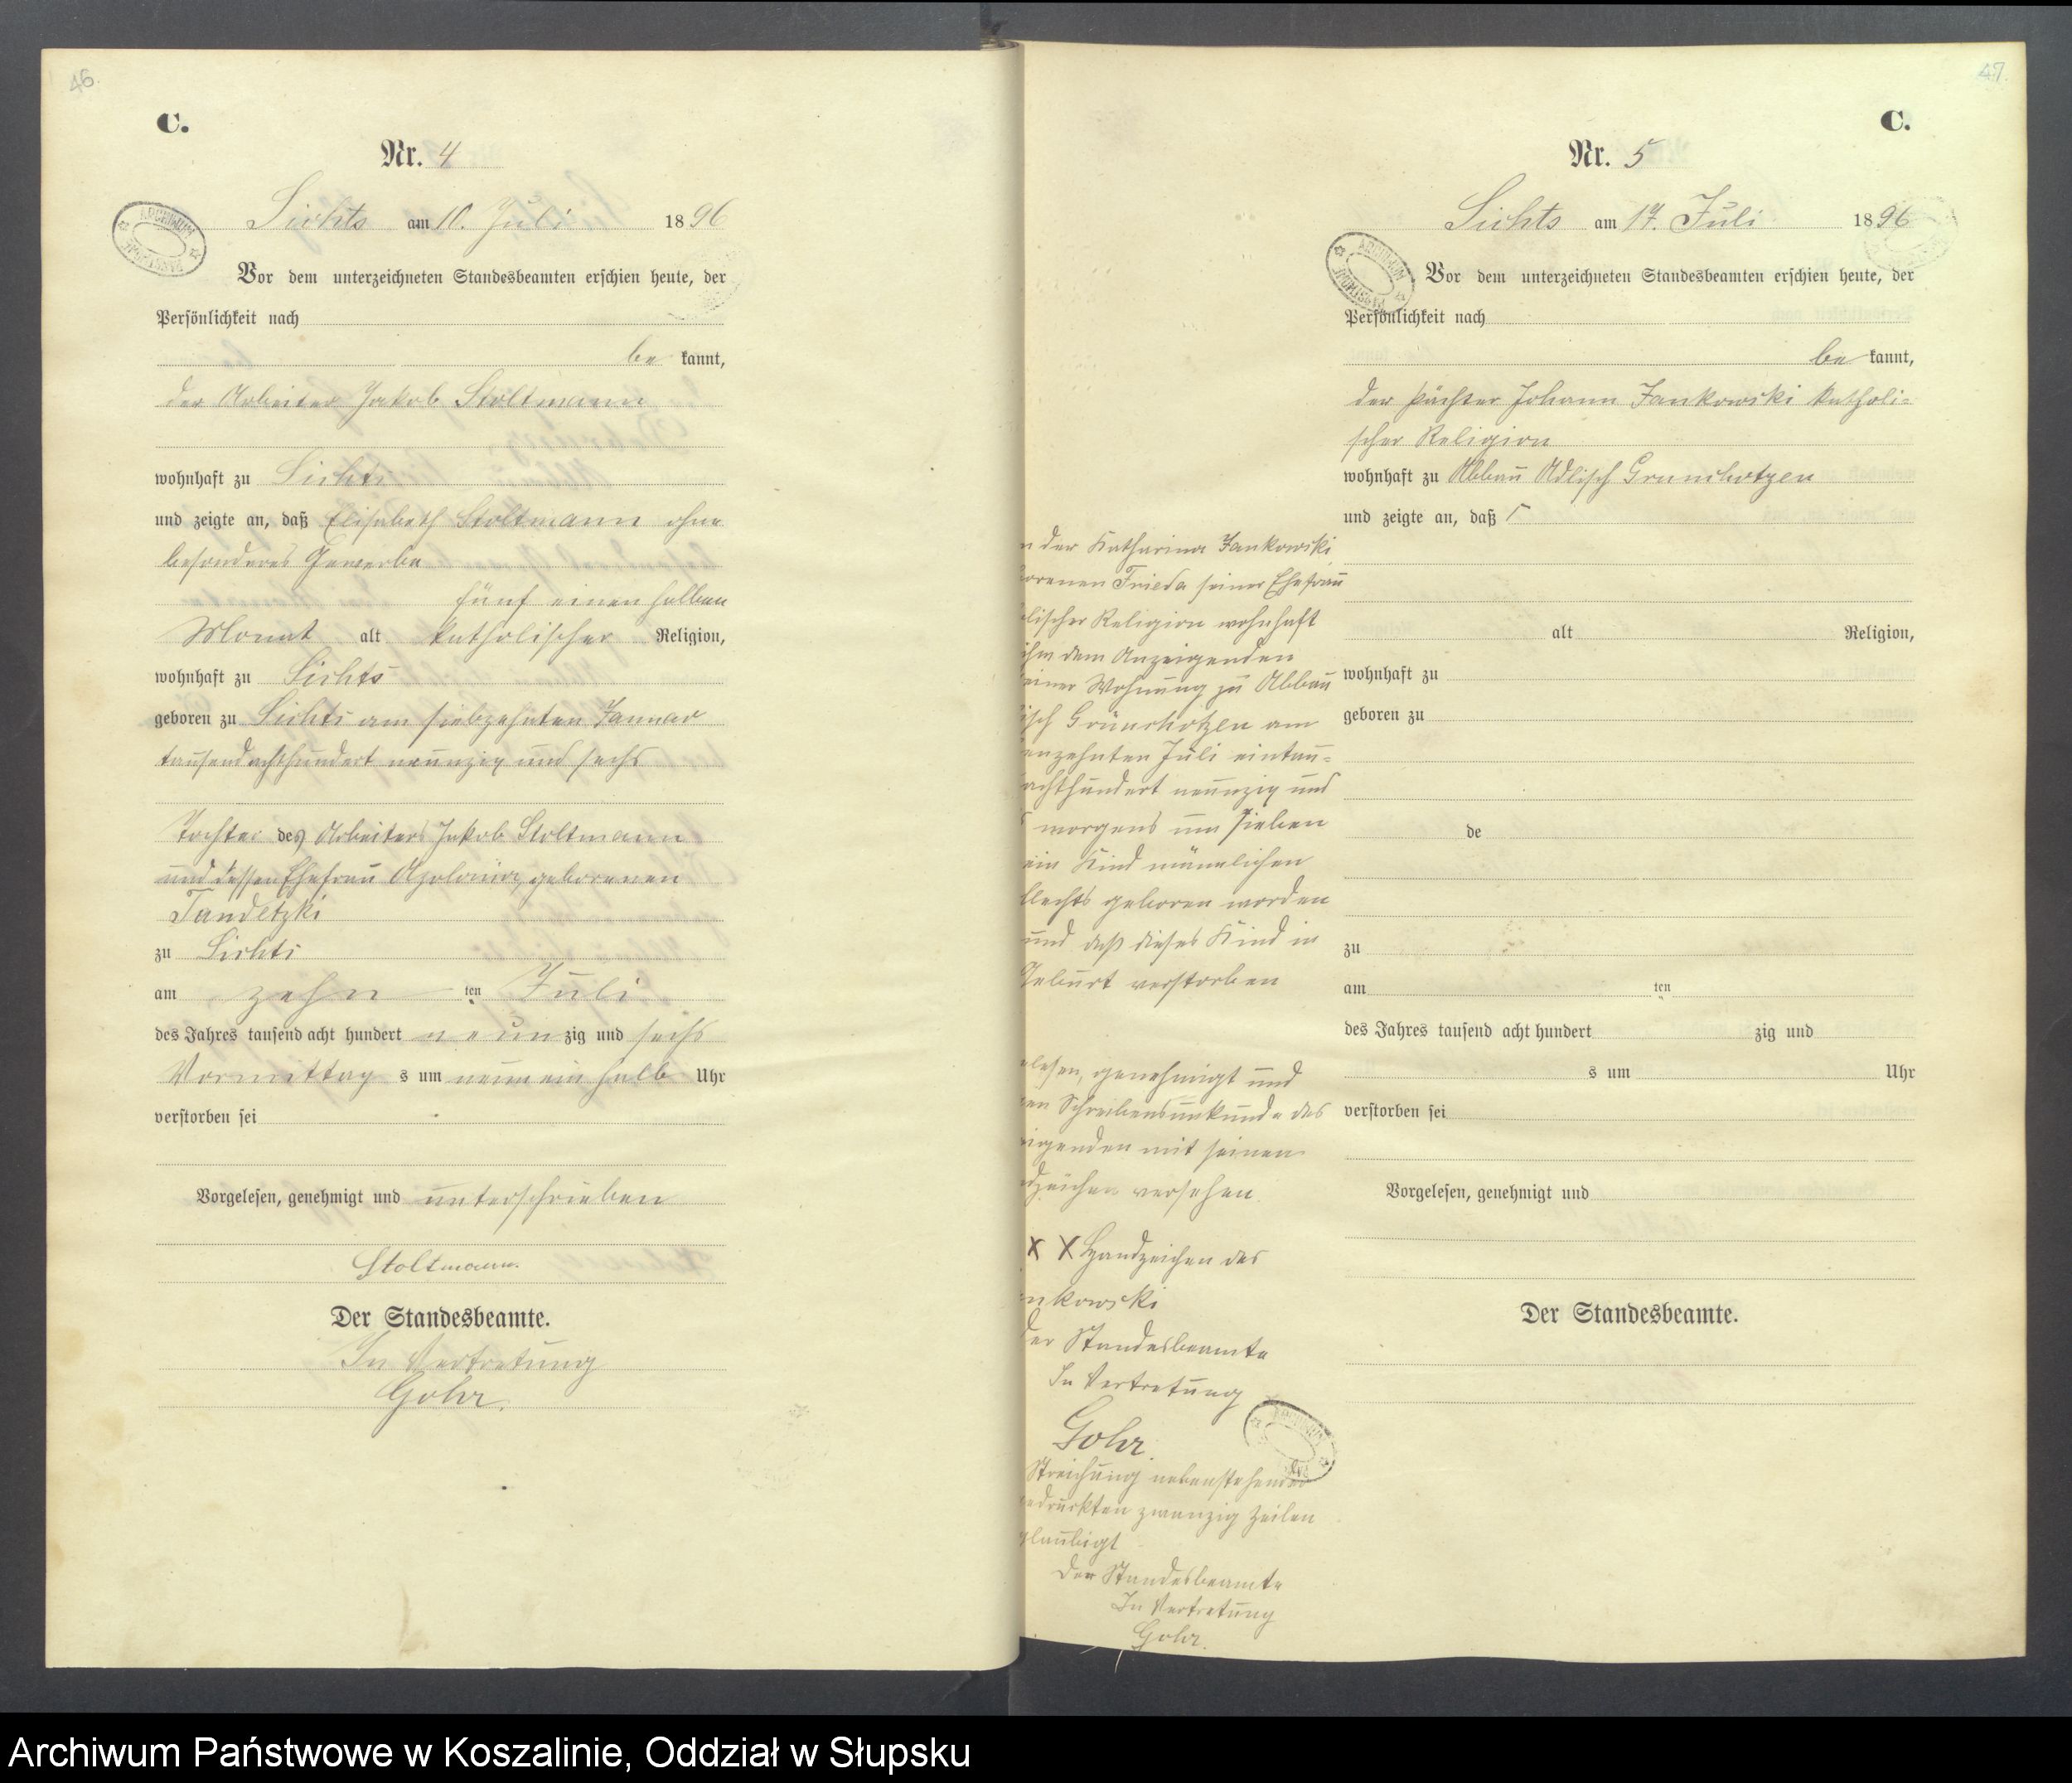 46.
C.
Nr. 4
Sichts am 10. Juli 1896
Vor dem unterzeichneten Standesbeamten erschien heute, der
Persönlichkeit nach
be kannt,
der Arbeiter Jakob Stoltmann
wohnhaft zu Sichts
und zeigte an, daß Elisabeth Stoltmann ohne
besonderes Gewerbe
fünf einen halben
Monat alt katholischer Religion,
wohnhaft zu Sichts
geboren zu Sichts am siebzehnten Januar
tausend achthundert neunzig und sechs
Tochter des Arbeiters Jakob Stoltmann
und dessen Ehefrau Apolonia, geborenen
Tandetzki
zu Sichts
am zehn ten Juli
des Jahres tausend acht hundert neun zig und sechs
Vormittag s um neun ein halb Uhr
verstorben sei
Vorgelesen, genehmigt und unterschrieben
Stoltmann.
Der Standesbeamte.
In Vertretung
Gohr.
47.
C.
Nr. 5
Sichts am 17. Juli 1896
Vor dem unterzeichneten Standesbeamten erschien heute, der
Persönlichkeit nach
be kannt,
der Pächter Johann Jankowski katholi=
scher Religion
wohnhaft zu Abbau Adlisch Grünchotzen
und zeigte an, daß Γ
alt Religion,
wohnhaft zu
geboren zu
de
zu
am ten
des Jahres tausend acht hundert zig und
s um Uhr
verstorben sei
Vorgelesen, genehmigt und
Der Standesbeamte.
n der Katharina Jankowski
orenen Frieda seiner Ehefrau
olischer Religion wohnhaft
ihm dem Anzeigenden
einer Wohnung zu Abbau
isch Grünchotzen am
enzehnten Juli eintau=
achthundert neunzig und
s morgens um sieben
ein Kind männlichen
llechts geboren worden
und daß dieses Kind in
Geburt verstorben
elesen, genehmigt und
en Schreibensunkunde des
eigenden mit seinen
dzeichen versehen
X X Handzeichen des
nkowski
Der Standesbeamte
In Vertretung
Gohr.
Streichung nebenstehender
edruckten zwanzig Zeilen
glaubigt
Der Standesbeamte
In Vertretung
Gohr.
ARCHIWUM
Archiwum Państwowe w Koszalinie, Oddział w Słupsku